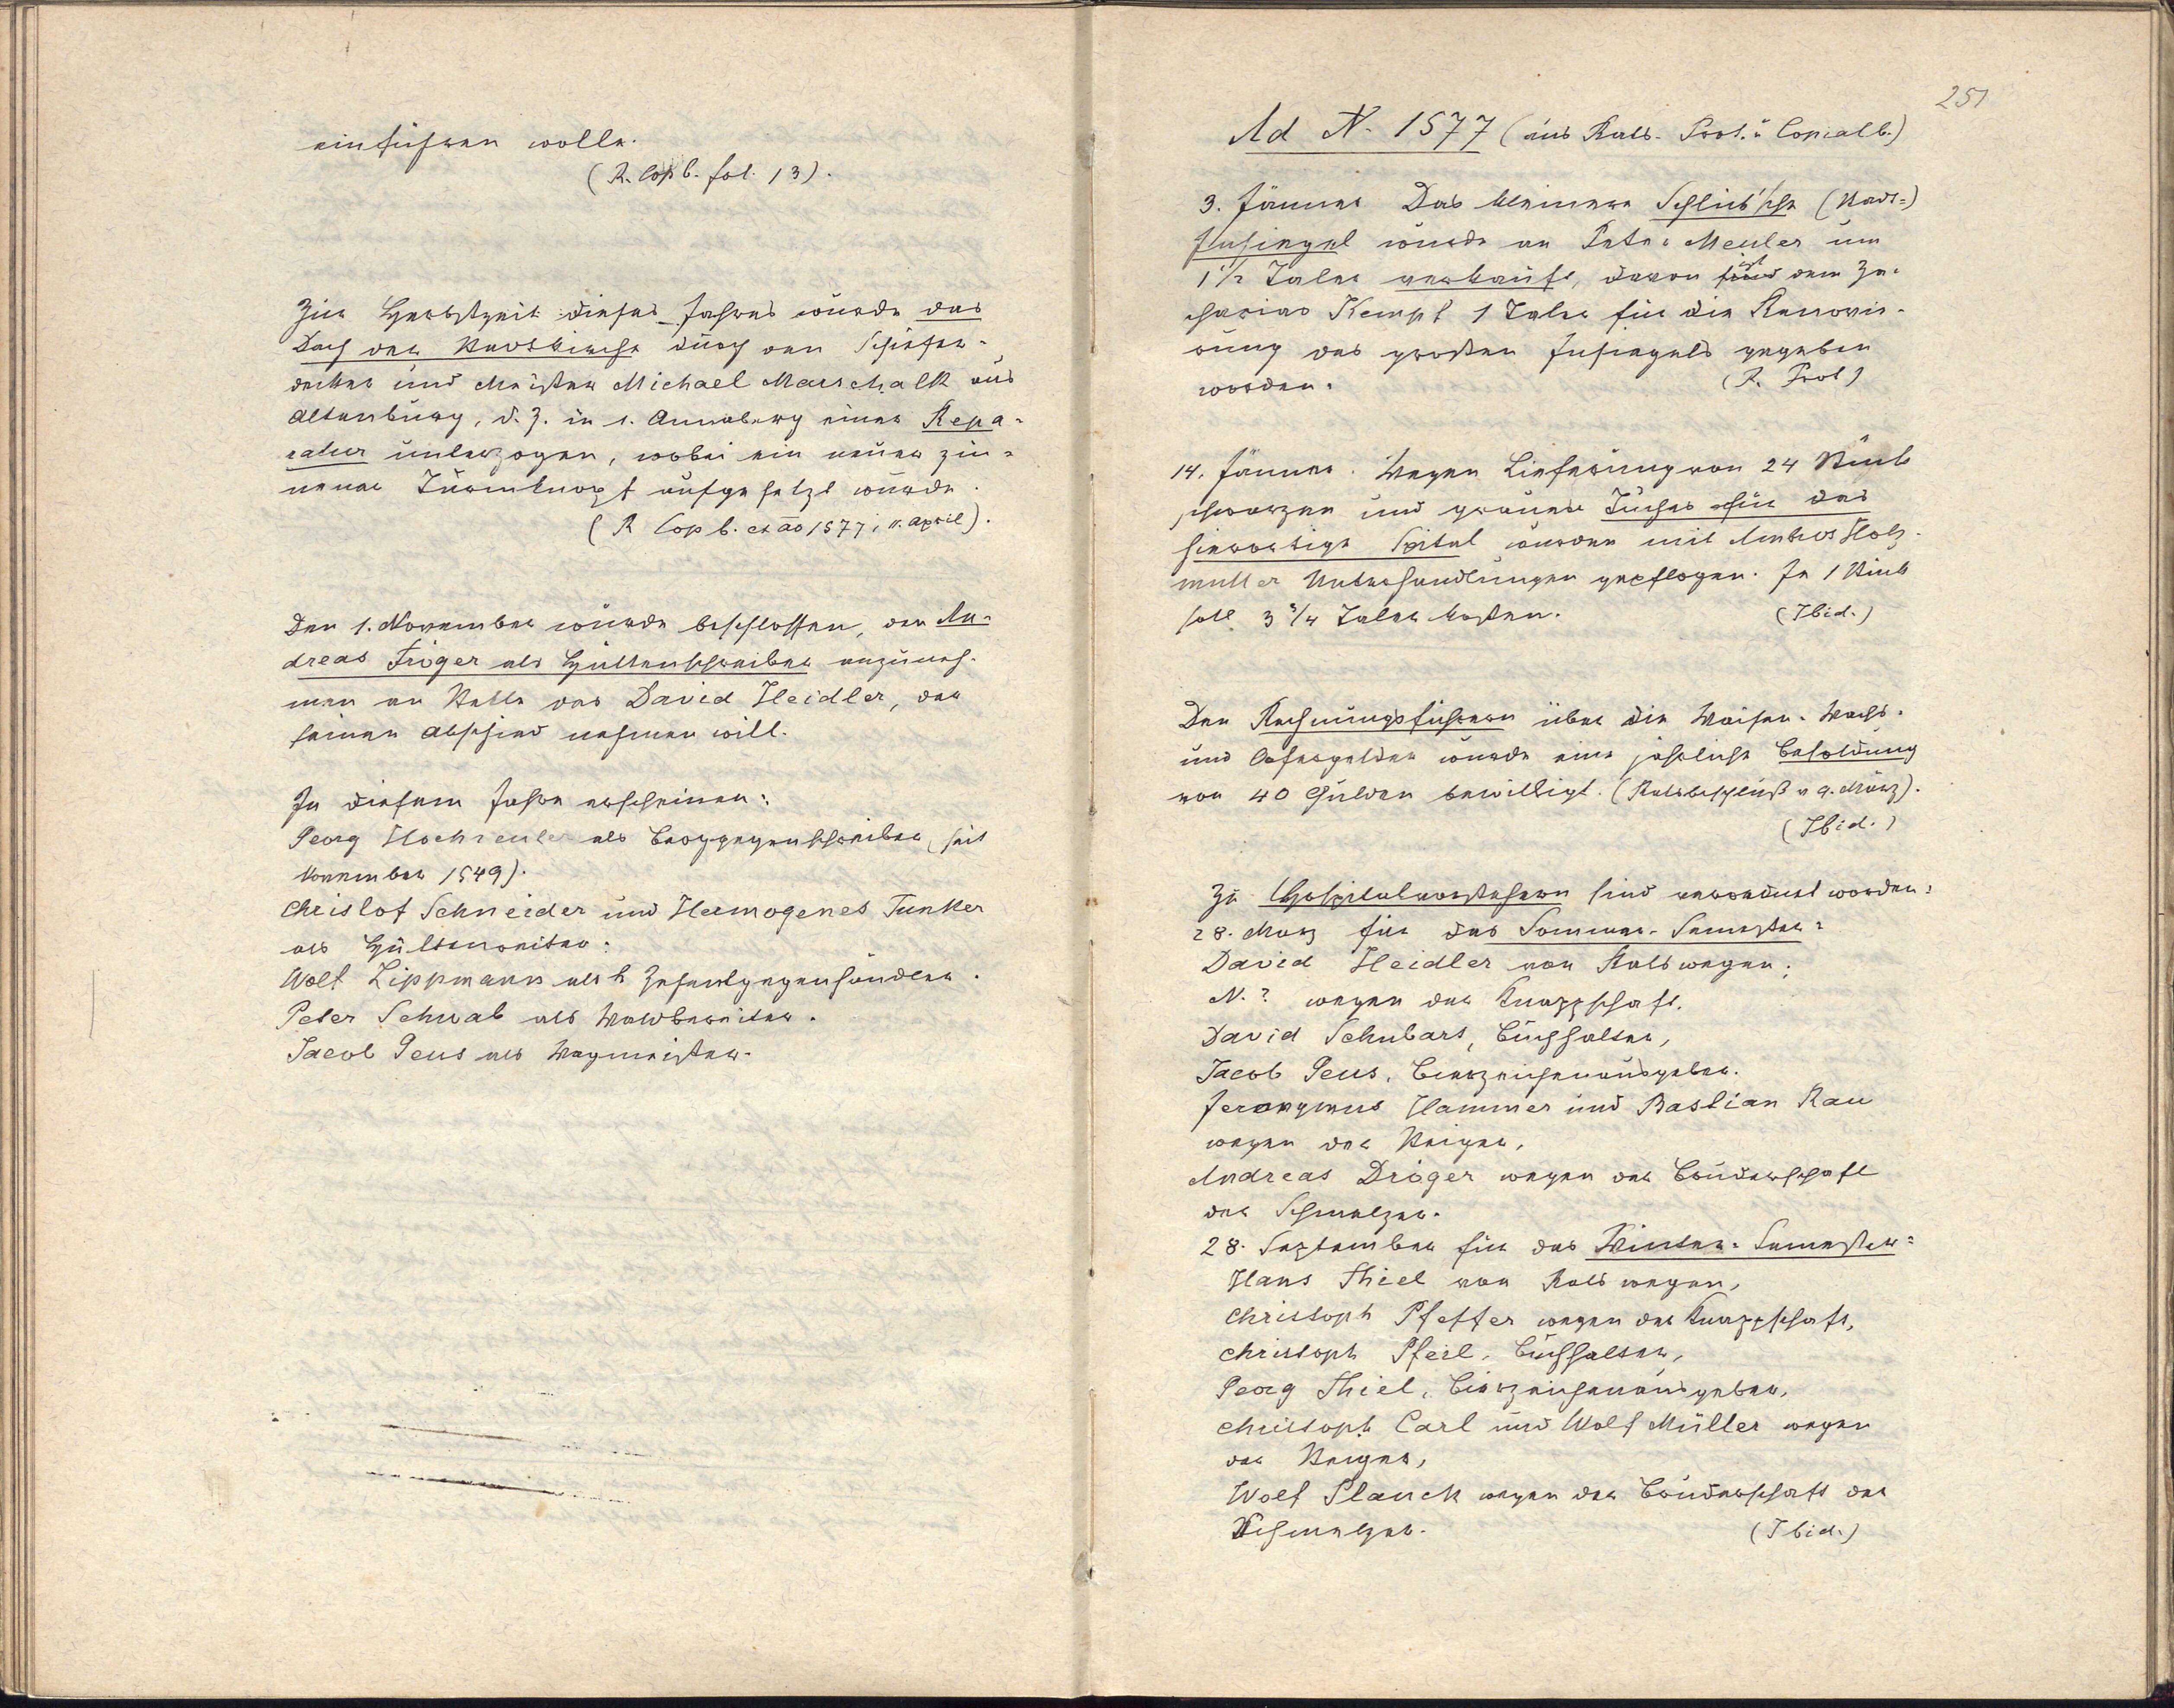 einführen wolle.
(R. Cop b. fol. 13).
Zur Herbstzeit dieses Jahres wurde das
Dach der Stadtkirche durch den Schiefer-
decker und Meister Michael Marschalk aus
Altenburg, d. Z. in S. Annaberg einer Repa-
ratur unterzogen, wobei ein neuer zin-
nener Turmknopf aufgesetzt wurde.
(R Cop b. ex ao 1577, 11. April).
Den 1. November wurde beschlossen, den An-
dreas Tröger als Hüttenschreiber anzuneh-
men an Stelle des David Heidler, der
seinen Abschied nehmen will.
In diesem Jahre erscheinen:
Georg Hochreuter als Berggegenschreiber (seit
November 1549).
Christof Schneider und Hermogenes Tunker
als Hüttenreiter.
Wolf Lippmann als k Zehentgegenhändler.
Peter Schwab als Waldbereiter.
Jacob Geus als Wagmeister.
251
Ad N. 1577 (aus Rats- Prot. u Copialb.)
3. Jänner Das kleinere Schlick'sche (Stadt-)
Insiegel wurde an Peter Meuler um
1 1/2 Taler verkauft, davon sind ist dem Za-
charias Kempf 1 Taler für die Renovir-
ung des großen Insiegels gegeben
worden. (R. Prot)
14. Jänner. Wegen Lieferung von 24 Stück
schwarzen und grauen Tuches für das
hierortige Spital wurden mit Holz-
muller Unterhandlungen gepflogen. Je 1 Stück
soll 3 3/4 Taler kosten. (Ibid.)
Den Rechnungsführern über die Waisen- Wachs-
und Opfergelder wurde eine jährliche Besoldung
von 40 Gulden bewilligt. (Ratsbeschluß v 9. März).
(Ibid.)
Zu Hospitalvorstehern sind verordnet worden:
28. März für das Sommer- Semester:
David Heidler von Rats wegen;
N.? wegen der Knappschaft.
David Schubart, Buchhalter,
Jacob Geus, Bierzeichenausgeber.
Jeronymus Hammer und Bastian Rau
wegen der Steiger,
Andreas Dröger wegen der Bruderschaft
der Schmelzer.
28. September für das Winter- Semester:
Hans Thiel von Rats wegen,
Christoph Pfeffer wegen der Knappschaft,
Christoph Pfeil, Buchhalter,
Georg Thiel, Bierzeichenausgeber,
Christoph Carl und Wolf Müller wegen
der Steiger,
Wolf Planck wegen der Bruderschaft der
Schmelzer. (Ibid.)